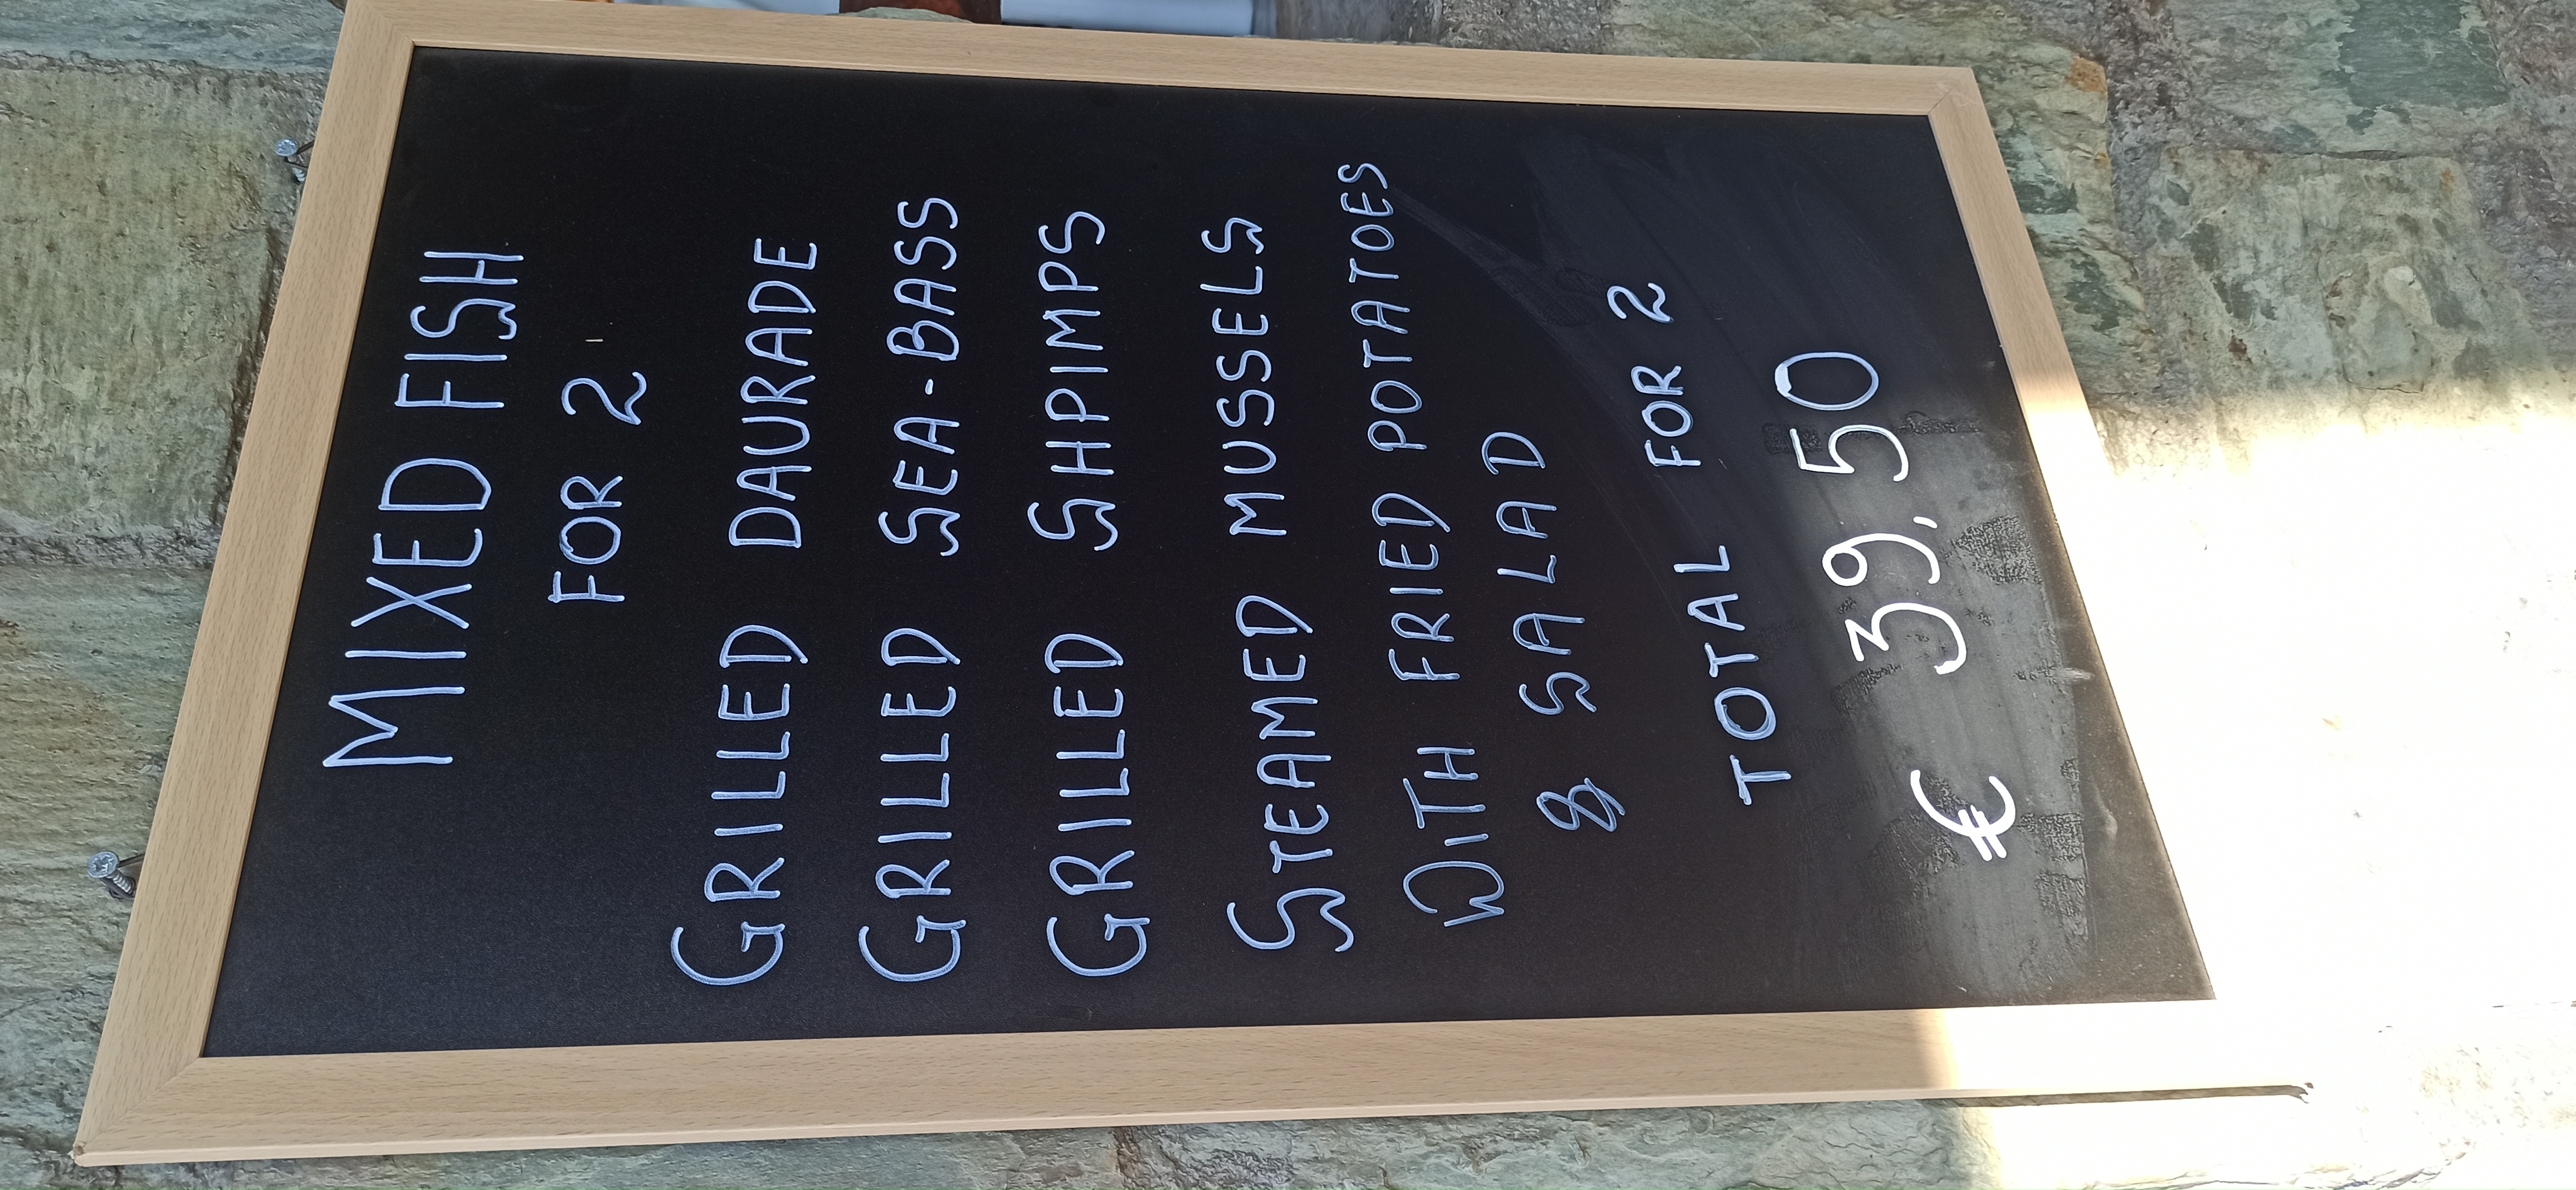 MIXED FISH
FOR 2
GRILLED DAURADE
GRILLED SEA-BASS
GRILLED SHPIMPS
STEAMED MUSSELS
WITH FRIED POTATOES
& SALAD
TOTAL FOR 2
€ 39,50